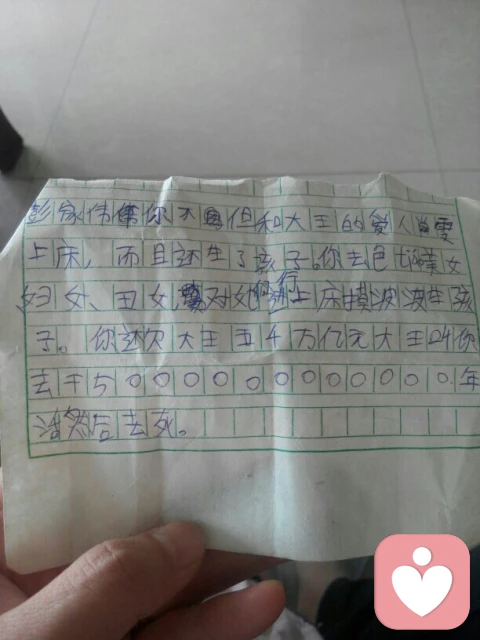 彭家伟你不但和大王的爱人肖雯
上床,而且还生了孩子。你去色女
妇女、丑女,对她们进行上床摸波波生孩
子。你还欠大王五千万亿元大王叫你
去干500000000000年
活然后去死。